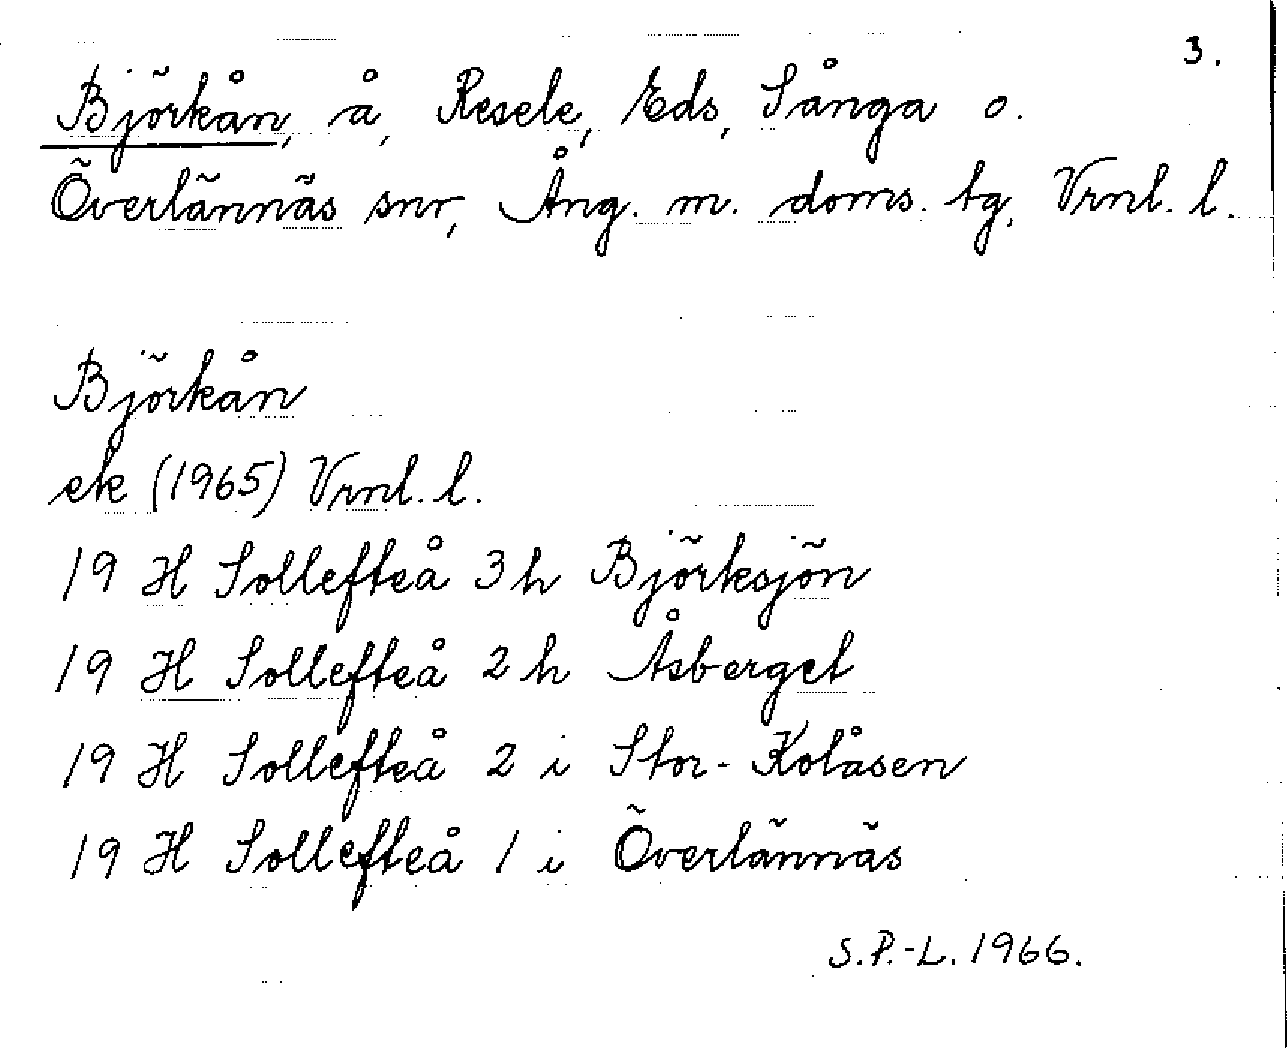 3.
Björkån, å, Resele, Eds, Sånga o.
Överlännäs snr, Ång. m. doms. tg, Vrnl. l.
Björkån
ek (1965) Vrnl. l.
19 H Sollefteå 3 h Björksjön
19 H Sollefteå 2 h Åsberget
19 H Sollefteå 2 i Stor-Kolåsen
19 H Sollefteå 1 i Överlännäs
S.P.-L. 1966.